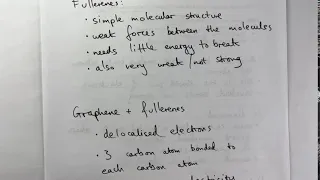 Fullerenes:
• simple molecular structure
• weak forces between the molecules
• needs little energy to break
• also very weak / not strong
Graphene + fullerenes
• delocalised electrons
• 3 carbon atom bonded to
each carbon atom